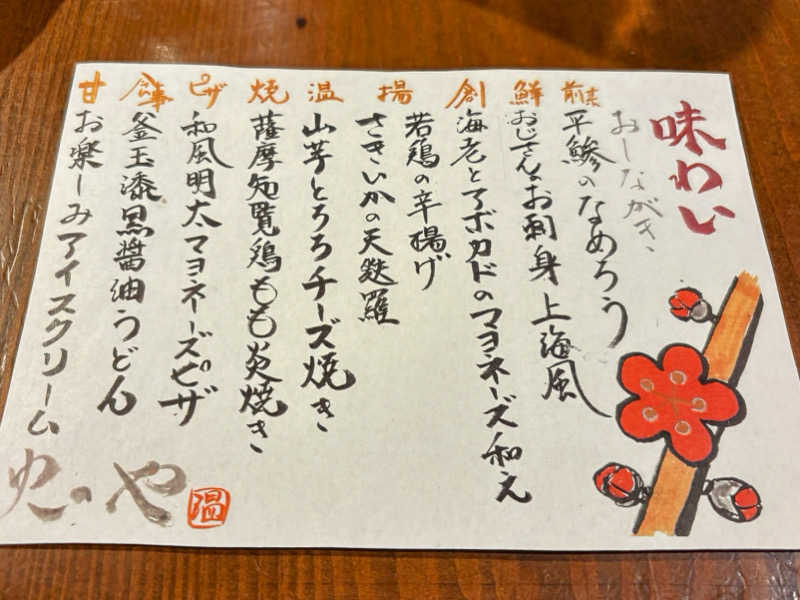 味わい
おしながき、
前菜
平鰺のなめろう
鮮
おじさんのお刺身 上海風
創
海老とアボカドのマヨネーズ和え
揚
若鶏の辛揚げ
さきいかの天麩羅
温
山芋とろろチーズ焼き
焼
薩摩知覧鶏もも炙焼き
ピザ
和風明太マヨネーズピザ
食事
釜玉漆黒醤油うどん
甘
お楽しみアイスクリーム
や
温